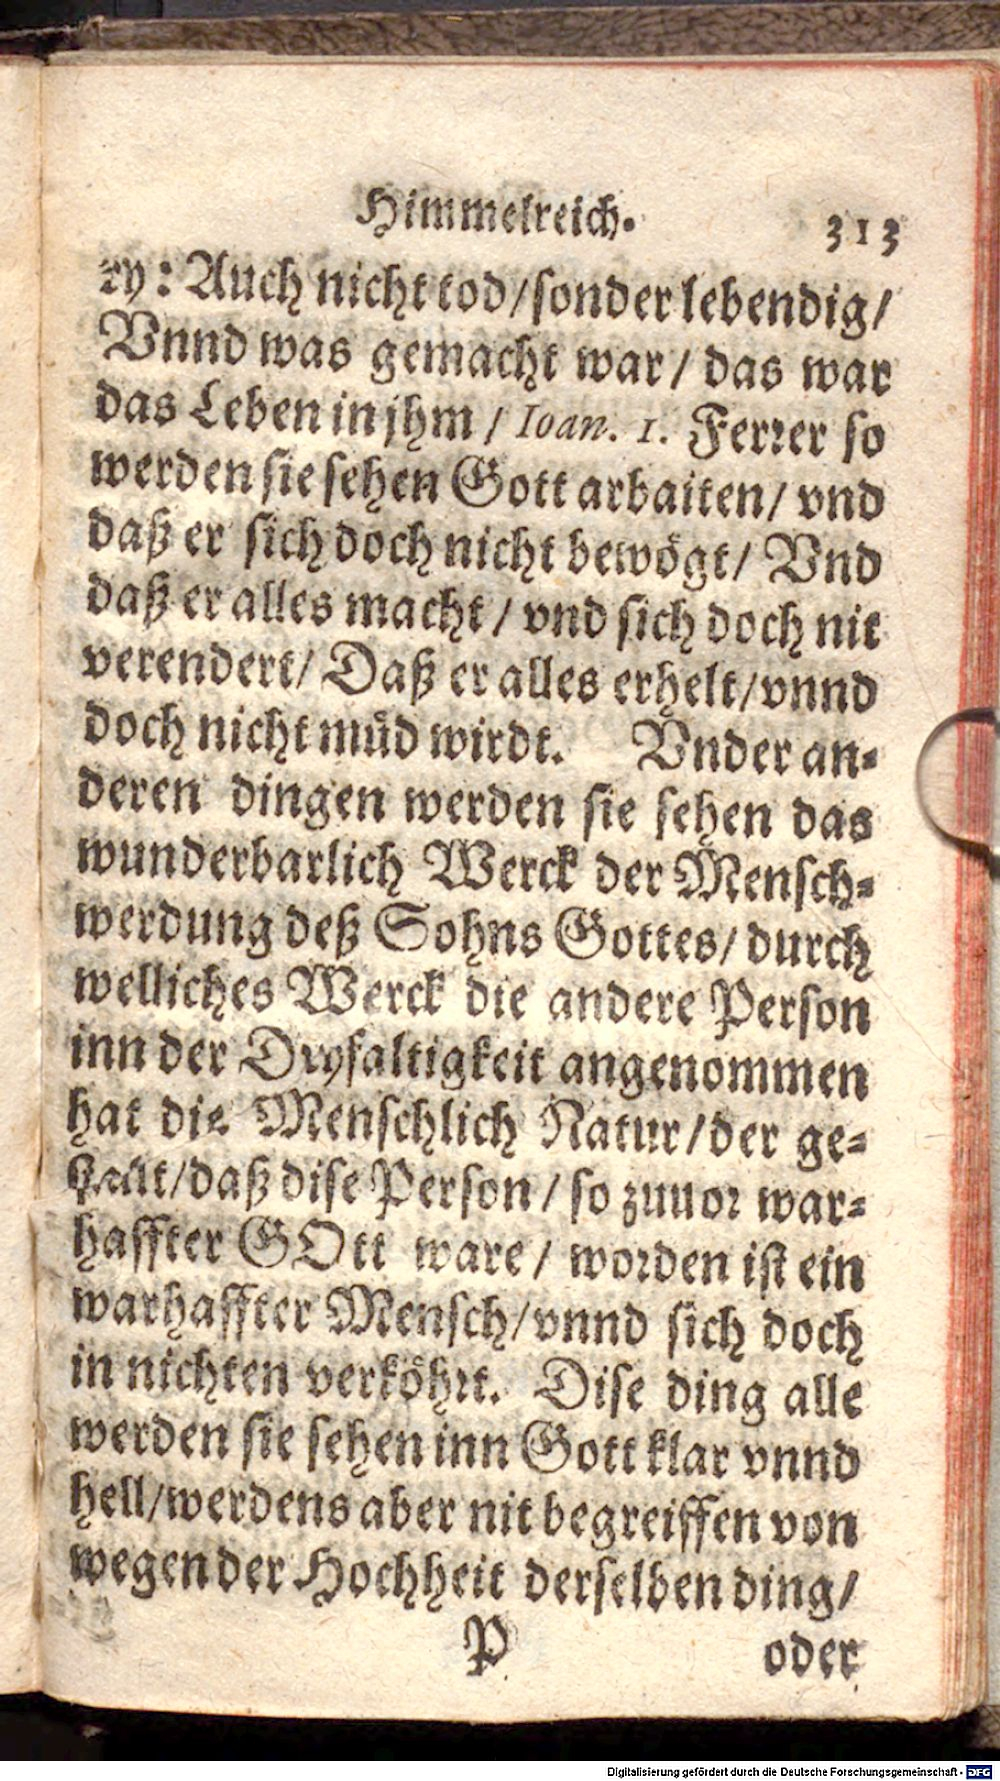 Himmelreich. 313
ry: Auch nicht tod/sonder lebendig/
Vnnd was gemacht war/ das war
das Leben in jhm / Ioan. 1. Ferrer so
werden sie sehen Gott arbaiten/ vnd
daß er sich doch nicht bewögt/ Vnd
daß er alles macht / vnd sich doch nit
verendert/ Daß er alles erhelt/vnnd
doch nicht müd wirdt. Vnder an-
deren dingen werden sie sehen das
wunderbarlich Werck der Mensch-
werdung deß Sohns Gottes/ durch
welliches Werck die andere Person
inn der Dryfaltigkeit angenommen
hat die Menschlich Natur/der ge-
stallt/daß dise Person / so zuuor war-
haffter GOtt ware / worden ist ein
warhaffter Mensch/vnnd sich doch
in nichten verköhrt. Dise ding alle
werden sie sehen inn Gott klar vnnd
hell/werdens aber nit begreiffen von
wegen der Hochheit derselben ding/
P oder
Digitalisierung gefördert durch die Deutsche Forschungsgemeinschaft - DFG